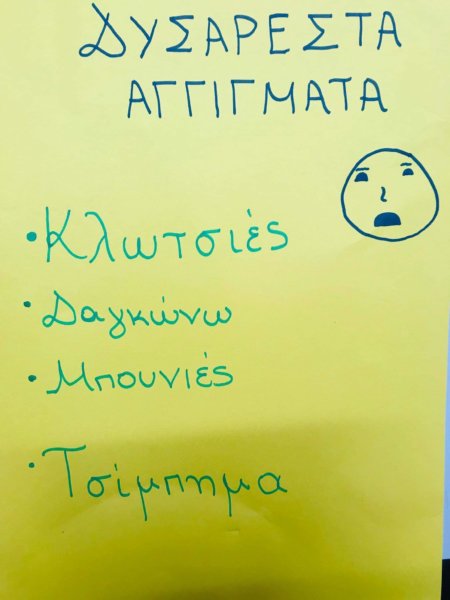 ΔΥΣΑΡΕΣΤΑ
ΑΓΓΙΓΜΑΤΑ
• Κλωτσιές
• Δαγκώνω
• Μπουνιές
• Τσίμπημα